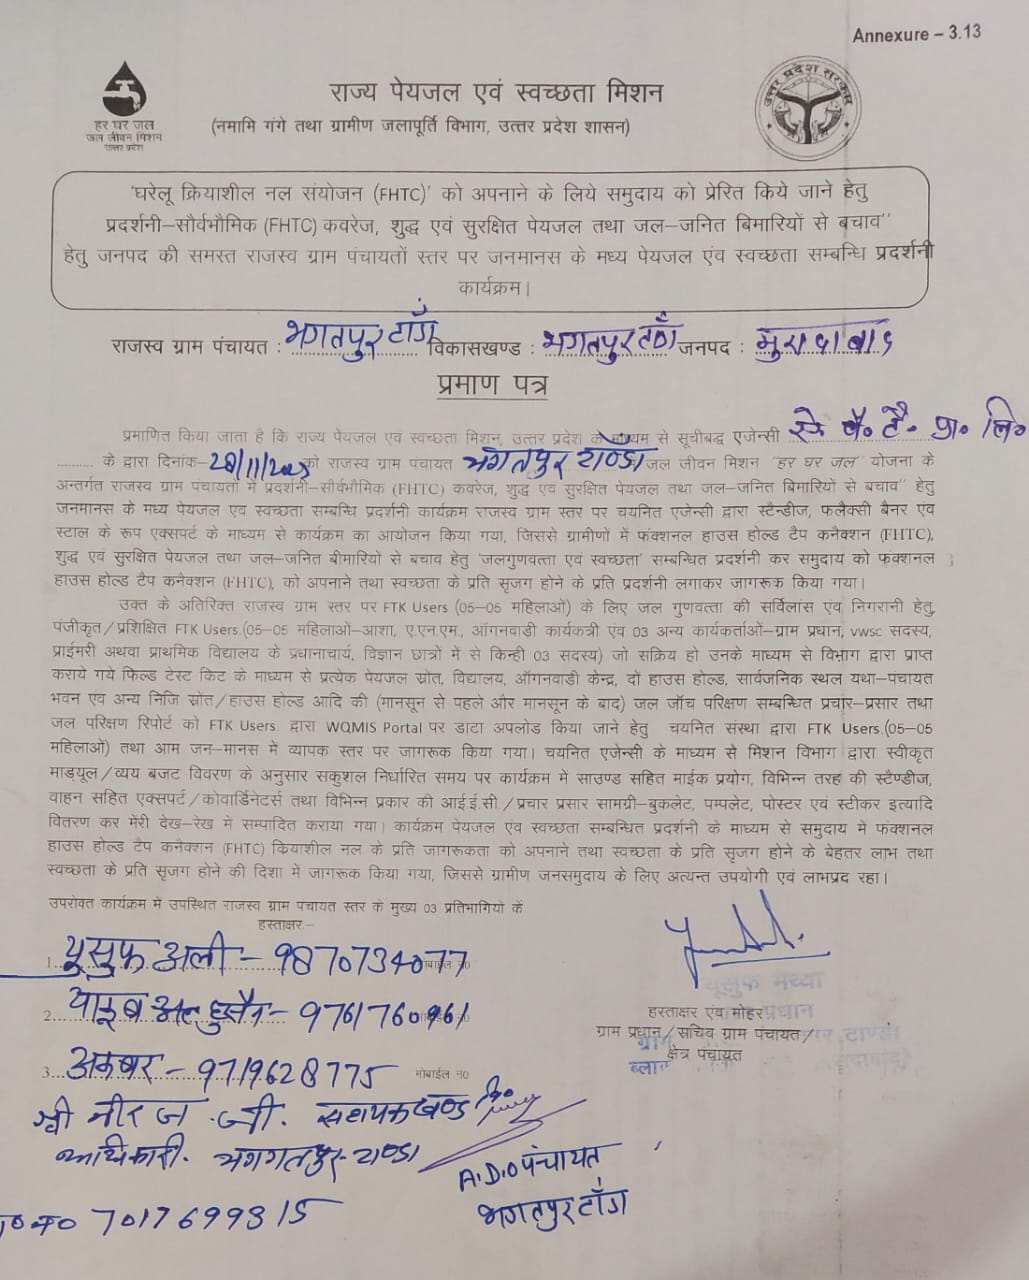 Annexure – 3.13
हर घर जल
जल जीवन मिशन
उत्तर प्रदेश
उत्तर प्रदेश सरकार
राज्य पेयजल एवं स्वच्छता मिशन
(नमामि गंगे तथा ग्रामीण जलापूर्ति विभाग, उत्तर प्रदेश शासन)
'घरेलू क्रियाशील नल संयोजन (FHTC)' को अपनाने के लिये समुदाय को प्रेरित किये जाने हेतु
प्रदर्शनी–सौर्वभौमिक (FHTC) कवरेज, शुद्ध एवं सुरक्षित पेयजल तथा जल–जनित बिमारियों से बचाव"
हेतु जनपद की समस्त राजस्व ग्राम पंचायतों स्तर पर जनमानस के मध्य पेयजल एंव स्वच्छता सम्बन्धि प्रदर्शनी
कार्यक्रम।
राजस्व ग्राम पंचायत : भगतपुर टाँडा विकासखण्ड : भगतपुर टाँडा जनपद : मुरादाबाद
प्रमाण पत्र
प्रमाणित किया जाता है कि राज्य पेयजल एवं स्वच्छता मिशन, उत्तर प्रदेश के माध्यम से सूचीबद्ध एजेन्सी प्रा० लि०
के द्वारा दिनांक–28/11/2025 को राजस्व ग्राम पंचायत भगतपुर टाण्डा जल जीवन मिशन "हर घर जल" योजना के
अन्तर्गत राजस्व ग्राम पंचायतों में प्रदर्शनी–सौर्वभौमिक (FHTC) कवरेज, शुद्ध एवं सुरक्षित पेयजल तथा जल–जनित बिमारियों से बचाव" हेतु
जनमानस के मध्य पेयजल एंव स्वच्छता सम्बन्धि प्रदर्शनी कार्यक्रम राजस्व ग्राम स्तर पर चयनित एजेन्सी द्वारा स्टैन्डीज, फलैक्सी बैनर एंव
स्टाल के रूप एक्सपर्ट के माध्यम से कार्यक्रम का आयोजन किया गया, जिससे ग्रामीणों में फंक्शनल हाउस होल्ड टैप कनैक्शन (FHTC),
शुद्ध एवं सुरक्षित पेयजल तथा जल–जनित बीमारियों से बचाव हेतु 'जलगुणवत्ता एंव स्वच्छता' सम्बन्धित प्रदर्शनी कर समुदाय को फंक्शनल
हाउस होल्ड टैप कनैक्शन (FHTC), को अपनाने तथा स्वच्छता के प्रति सृजग होने के प्रति प्रदर्शनी लगाकर जागरूक किया गया।
उक्त के अतिरिक्त राजस्व ग्राम स्तर पर FTK Users (05–05 महिलाओं) के लिए जल गुणवत्ता की सर्विलांस एंव निगरानी हेतु,
पंजीकृत/प्रशिक्षित FTK Users.(05–05 महिलाओं–आशा, ए.एन.एम., आँगनवाड़ी कार्यकत्री एंव 03 अन्य कार्यकर्ताओं–ग्राम प्रधान, vwsc सदस्य,
प्राईमरी अथवा प्राथमिक विद्यालय के प्रधानाचार्य, विज्ञान छात्रों में से किन्ही 03 सदस्य) जो सक्रिय हो उनके माध्यम से विभाग द्वारा प्राप्त
कराये गये फिल्ड टेस्ट किट के माध्यम से प्रत्येक पेयजल स्रोत, विद्यालय, ऑगनवाडी केन्द्र, दो हाउस होल्ड, सार्वजनिक स्थल यथा–पंचायत
भवन एंव अन्य निजि स्रोत/हाउस होल्ड आदि की (मानसून से पहले और मानसून के बाद) जल जाँच परिक्षण सम्बन्धित प्रचार–प्रसार तथा
जल परिक्षण रिपोर्ट को FTK Users. द्वारा WQMIS Portal पर डाटा अपलोड किया जाने हेतु चयनित संस्था द्वारा FTK Users.(05–05
महिलाओं) तथा आम जन–मानस में व्यापक स्तर पर जागरूक किया गया। चयनित एजेन्सी के माध्यम से मिशन विभाग द्वारा स्वीकृत
माड्यूल/व्यय बजट विवरण के अनुसार सकुशल निर्धारित समय पर कार्यक्रम में साउण्ड सहित माईक प्रयोग, विभिन्न तरह की स्टैण्डीज,
वाहन सहित एक्सपर्ट/कोवार्डिनेटर्स तथा विभिन्न प्रकार की आई.ई.सी./प्रचार प्रसार सामग्री–बुकलेट, पम्पलेट, पोस्टर एवं स्टीकर इत्यादि
वितरण कर मेंरी देख–रेख में सम्पादित कराया गया। कार्यक्रम पेयजल एंव स्वच्छता सम्बन्धित प्रदर्शनी के माध्यम से समुदाय में फंक्शनल
हाउस होल्ड टैप कनेक्शन (FHTC) क्रियाशील नल के प्रति जागरूकता को अपनाने तथा स्वच्छता के प्रति सृजग होने के बेहतर लाभ तथा
स्वच्छता के प्रति सृजग होने की दिशा में जागरूक किया गया, जिससे ग्रामीण जनसमुदाय के लिए अत्यन्त उपयोगी एवं लाभप्रद रहा।
उपरोक्त कार्यक्रम में उपस्थित राजस्व ग्राम पंचायत स्तर के मुख्य 03 प्रतिभागियो कें
हस्ताक्षर:–
1. यूसुफ अली – 9870734077
2. – 9761760961
3. अकबर – 9719628775 मोबाईल न0
यूसुफ मय्या
हस्ताक्षर एंव मोहर प्रधान
ग्राम प्रधान/सचिव ग्राम पंचायत/
क्षेत्र पंचायत
ब्लाक
श्री नीरज जी. सहायक खण्ड वि०
अधिकारी. भगतपुर टाण्डा
A.D.O पंचायत
भगतपुर टाँडा
मो० न० 7017699315